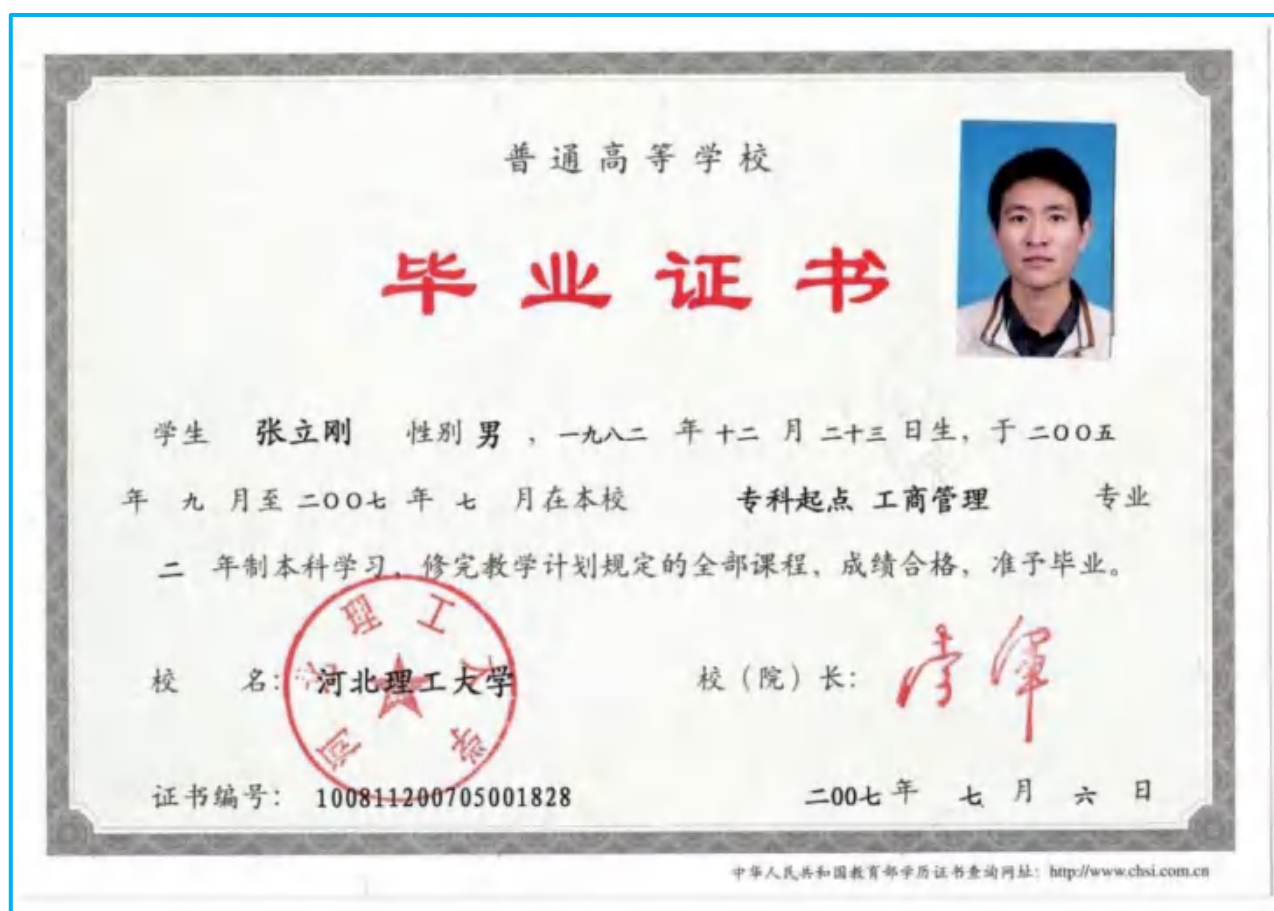 普通高等学校
毕业证书
学生 张立刚 性别 男 ，一九八二 年 十二 月 二十三 日生，于 二00五
年 九 月至 二00七 年 七 月在本校 专科起点 工商管理 专业
二 年制本科学习，修完教学计划规定的全部课程，成绩合格，准予毕业。
河北理工大学
校 名： 河北理工大学 校（院）长：
证书编号： 100811200705001828 二00七 年 七 月 六 日
中华人民共和国教育部学历证书查询网址：http://www.chsi.com.cn